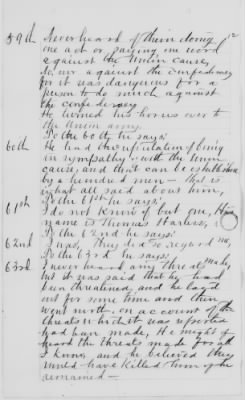 12
59th Never heard of them doing
one act or saying one word
against the Union cause,
No, nor against the confederacy
for it was dangerous for a
person to do much against
the confederacy
He loaned his horses over to
the Union army.
To the 60th he says:
60th He had the reputation of being
in sympathy with the Union
cause, and that can be established
by a hundred men - that is
what all said about him,
To the 61st he says:
61st I do not know if but one, His
name is Thomas Harless,
To the 62nd he says:
62nd I was, They did so regard me,
To the 63rd he says:
63rd I never heard any threats made,
but it was said that he had
been threatened, and he layed
out for some time and then
went north, on account of the
threats which it was reported
had been made, He might of
heard the threats made for all
I know, and he believed they
would have killed him if he
remained -